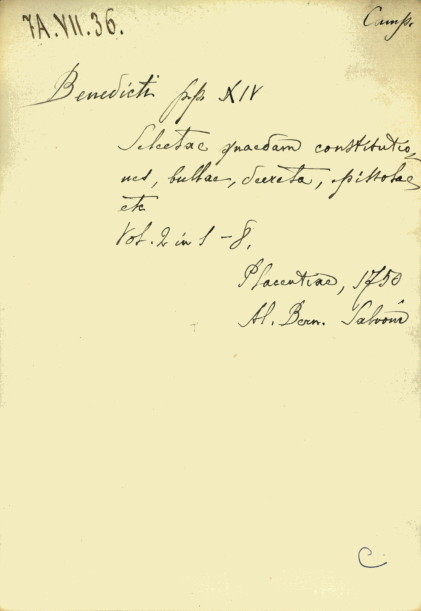 7A.VII.36.
Camp.
Benedicti pp XIV
Selectae quaedam constitutio
nes, bullae, decreta, epistolae
etc
Vol. 2 in 1 - 8.
Placentiae, 1750
Al. Bern. Salvoni
C